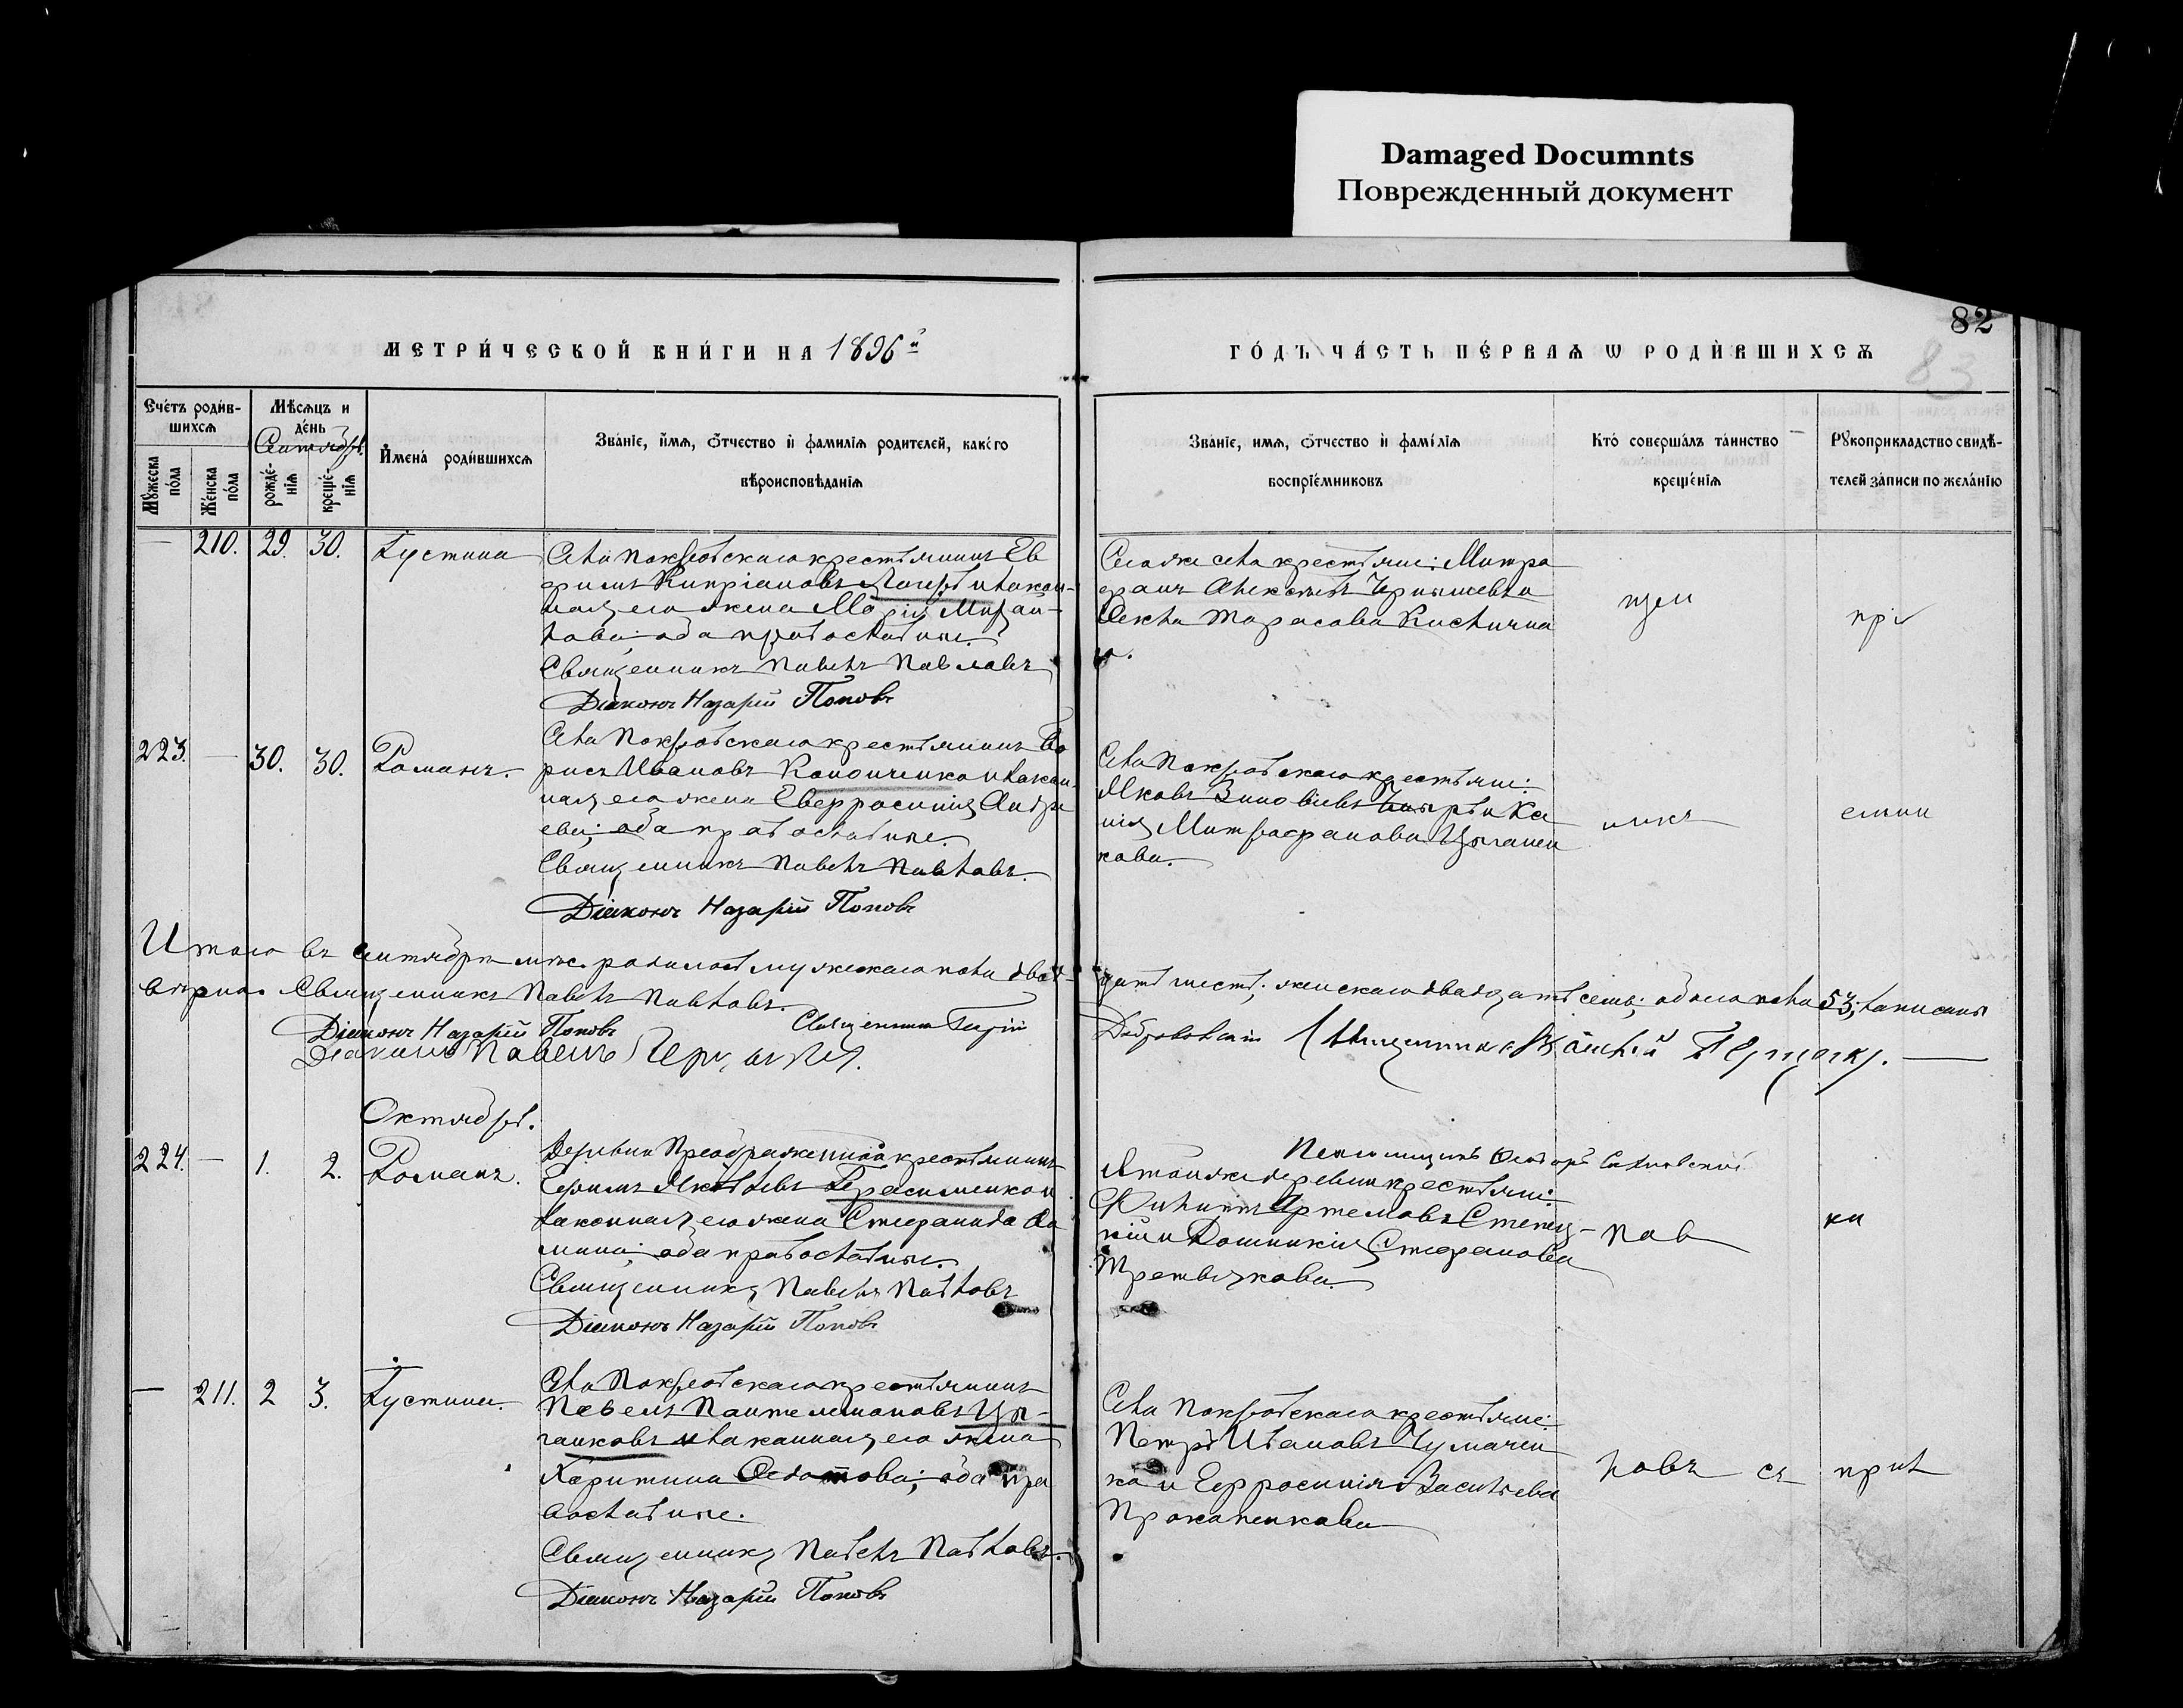 Damaged Documnts
Поврежденный документ
82
83
МЕТРИ́ЧЕСКОЙ КНИ́ГИ НА 1896й
ГО́ДЪ ЧА́СТЬ ПЕ́РВАѦ Ѡ РОДИ́ВШИХСѦ
Счéтъ роди́в-
шихсѧ
Мѣсѧцъ и
дéнь
Сентябрь.
Мꙋжеска
пóла
Жéнска
пóла
рождé-
нїѧ
крещé-
нїѧ
Имена́ роди́вшихсѧ
Зва́нїе, и́мѧ, ѻ́тчество и фамилїѧ родителей, какóго
вѣроисповѣданїѧ
Зва́нїе, имѧ, ѻ́тчество и фами́лїѧ
воспрїе́мниковъ
Ктó соверша́лъ та́инство
креще́нїѧ
Рꙋкоприкладство свидѣ́-
телей за́писи по жела́нїю
— 210. 29. 30. Іустина
Села Покровскаго крестьянинъ Ев
фимъ Кипріановъ и закон-
ная его жена Марія Михай-
лова; оба православные.
Священникъ Павелъ Павловъ
Діаконъ Назарій Поповъ
Того же села крестьяне: Митро
фанъ Алексѣевъ и
Ѳекла Тарасова
223. — 30. 30. Романъ.
Села Покровскаго крестьянинъ Бо
рисъ Ивановъ Кононченко и закон
ная его жена Евфросинія Андре
ева; оба православные.
Священникъ Павелъ Павловъ.
Діаконъ Назарій Поповъ
Села Покровскаго крестьяне:
Яковъ Зиновіевъ и Ксе
нія Митрофанова Цыганен
кова.
Итого въ сентябрѣ мѣс. родилось мужескаго пола двад-
цать шесть; женскаго двадцать семь; обоего пола 53; записаны
вѣрно. Священникъ Павелъ Павловъ.
Діаконъ Назарій Поповъ
Священникъ Георгій
Діаконъ Павелъ
Октябрь.
224. — 1. 2. Романъ.
Деревни Преображенной крестьянинъ
Ефимъ Яковлевъ Герасименко и
законная его жена Стефанида Ѳо
мина; оба православные.
Священникъ Павелъ Павловъ
Діаконъ Назарій Поповъ
Псаломщикъ Ѳеодоръ
той же деревни крестьяне:
Филиппъ Артемовъ
и Домникія Стефанова
Третьякова.
Пав
— 211. 2 3. Іустина.
Села Покровскаго крестьянинъ
Павелъ Пантелеимоновъ Цы-
ганковъ и законная его жена
Харитина Ѳедотова; оба пра
вославные.
Священникъ Павелъ Павловъ.
Діаконъ Назарій Поповъ
Села Покровскаго крестьяне:
Петръ Ивановъ Чумачен
ко и Евфросинія Васильева
Прокопенкова
ловъ съ